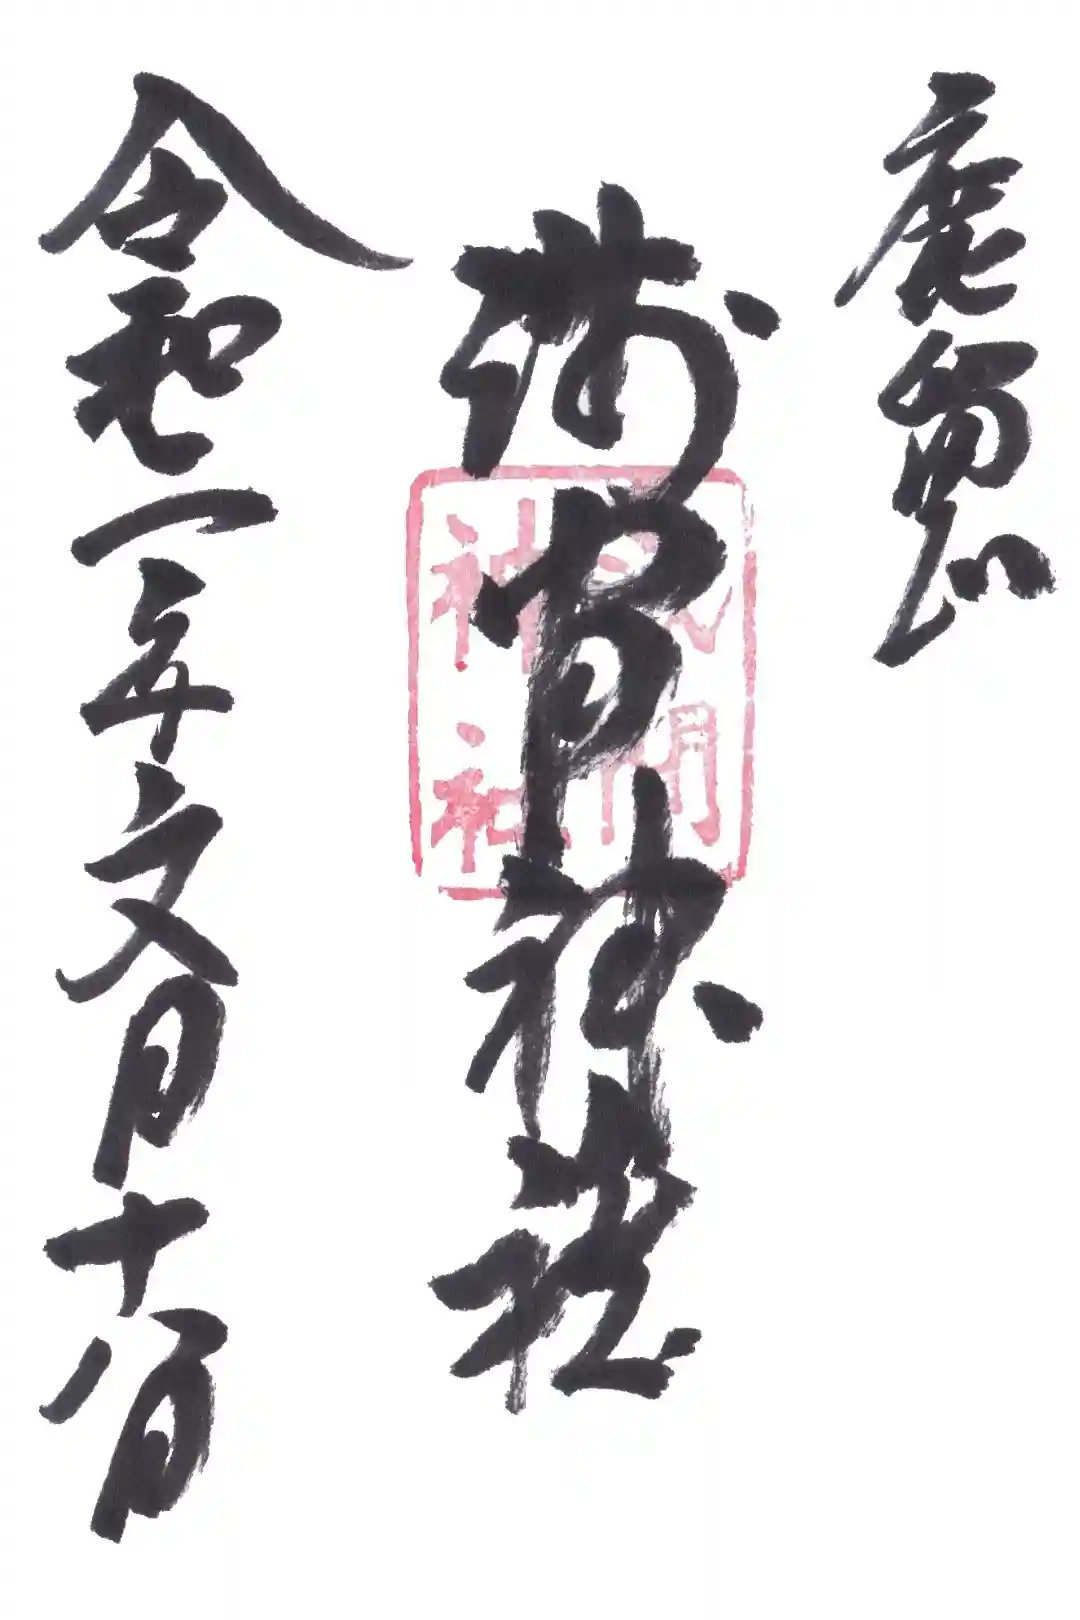 鹿留
浅間神社
令和一年文月十八日
浅間
神社